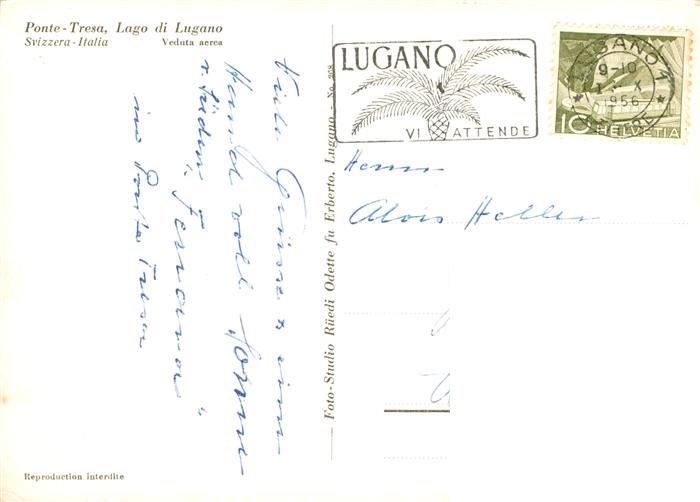 Ponte-Tresa, Lago di Lugano
Svizzera-Italia Veduta aerea
LUGANO
VI ATTENDE
LUGANO 1
9-10
1. X
1956
10 HELVETIA
Herrn
Alois Heller
Viele Grüsse u. eine
Handvoll Sonne
v. Süden,
in Ponte Tresa
Foto-Studio Rüedi Odette fu Erberto, Lugano - No. 208
Reproduction interdite